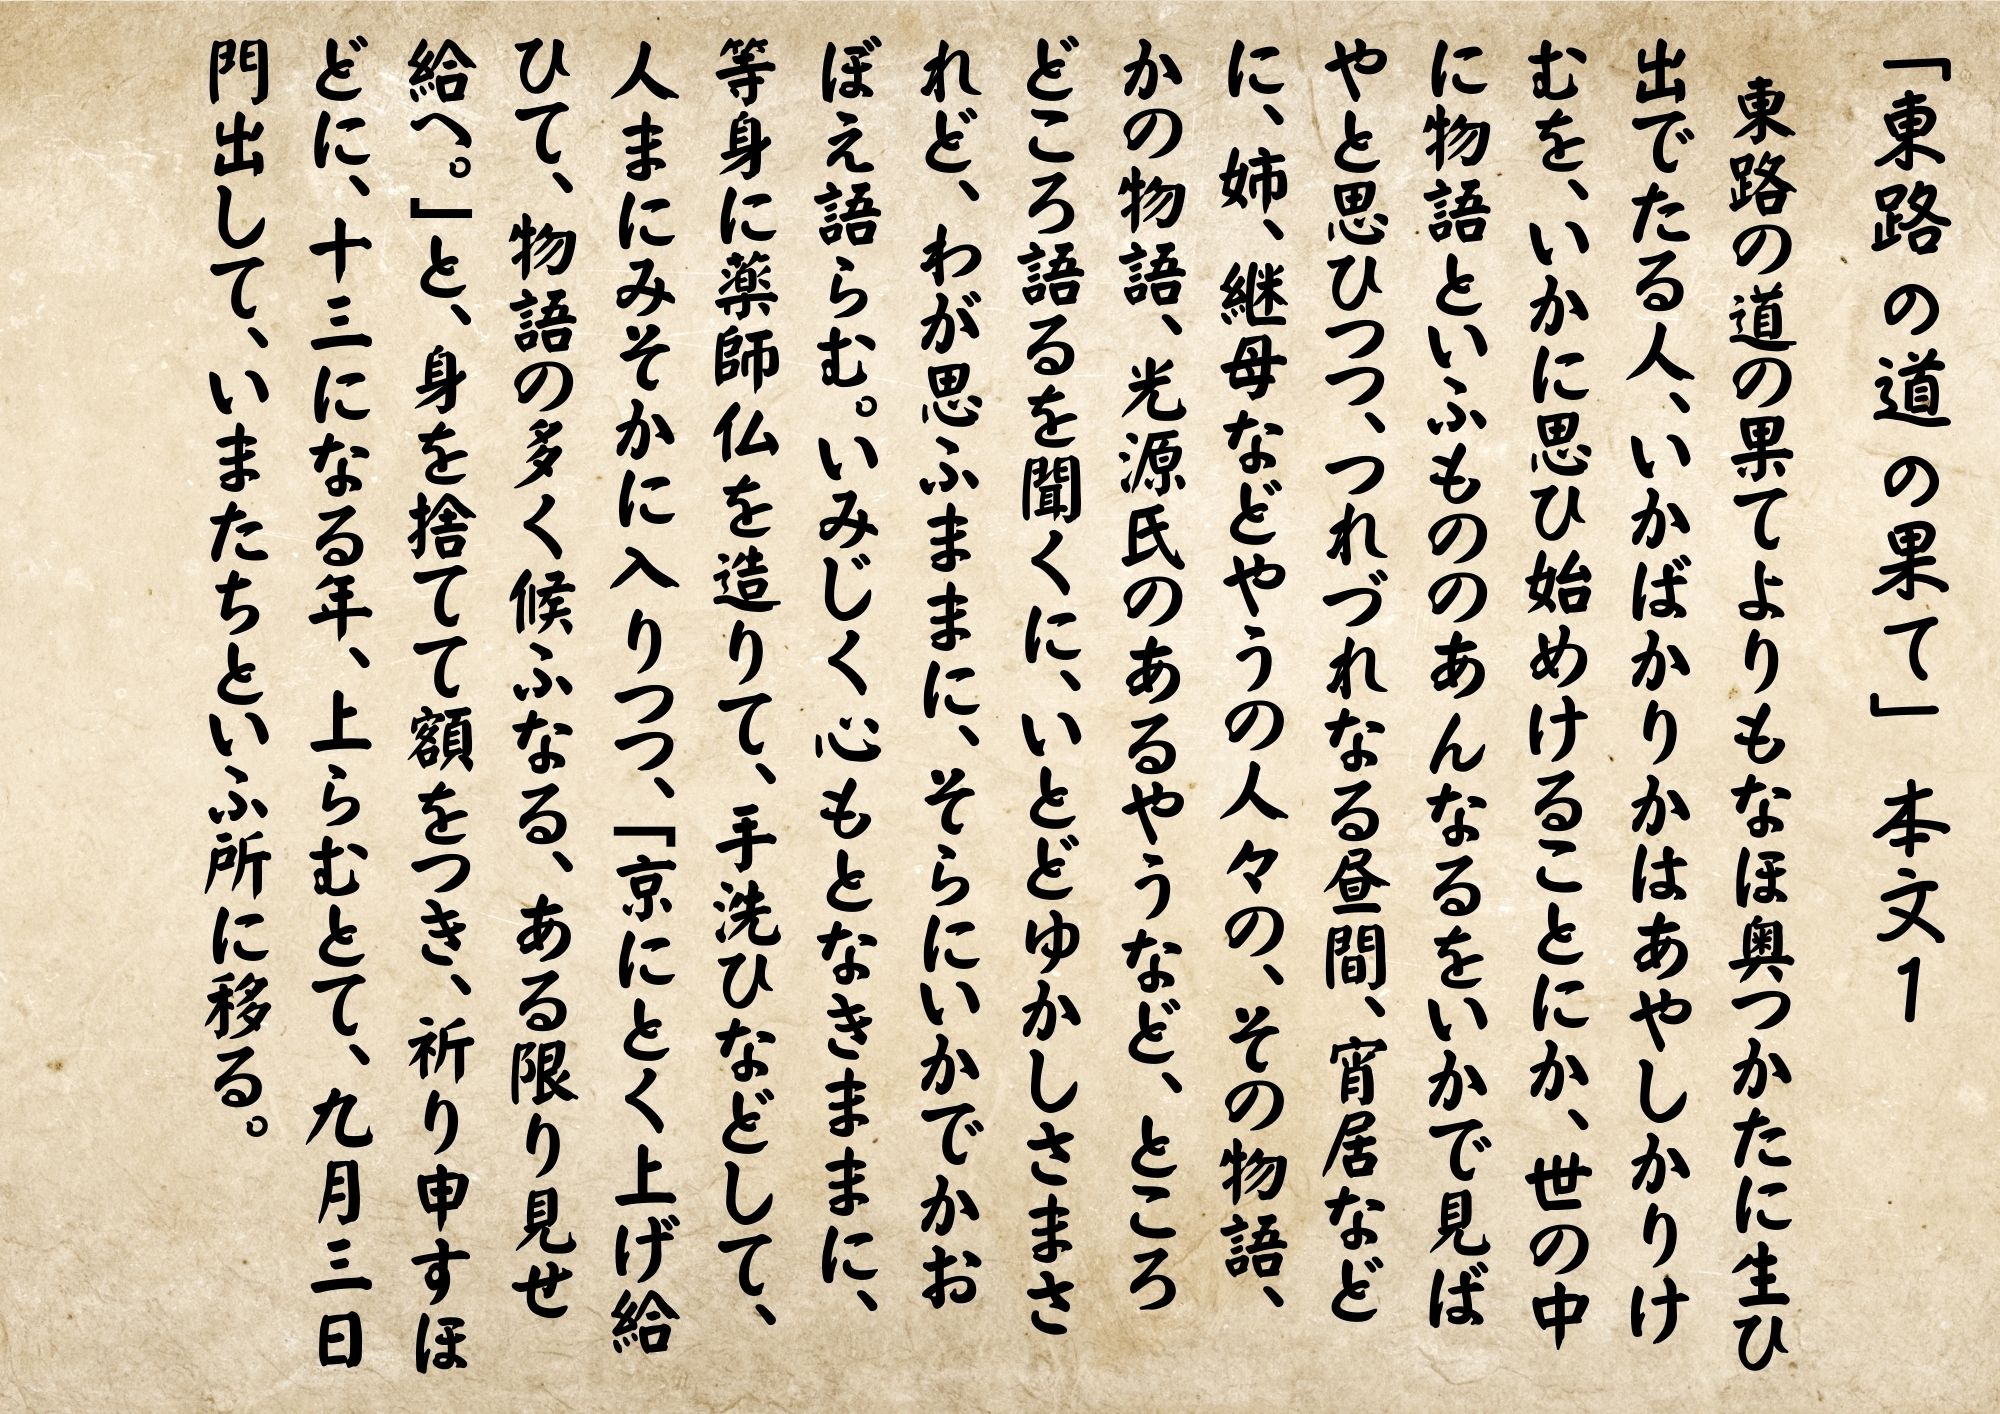 「東路の道の果て」 本文1
東路の道の果てよりもなほ奥つかたに生ひ
出でたる人、いかばかりかはあやしかりけ
むを、いかに思ひ始めけることにか、世の中
に物語といふもののあんなるをいかで見ば
やと思ひつつ、つれづれなる昼間、宵居など
に、姉、継母などやうの人々の、その物語、
かの物語、光源氏のあるやうなど、ところ
どころ語るを聞くに、いとどゆかしさまさ
れど、わが思ふままに、そらにいかでかお
ぼえ語らむ。いみじく心もとなきままに、
等身に薬師仏を造りて、手洗ひなどして、
人まにみそかに入りつつ、「京にとく上げ給
ひて、物語の多く候ふなる、ある限り見せ
給へ。」と、身を捨てて額をつき、祈り申すほ
どに、十三になる年、上らむとて、九月三日
門出して、いまたちといふ所に移る。